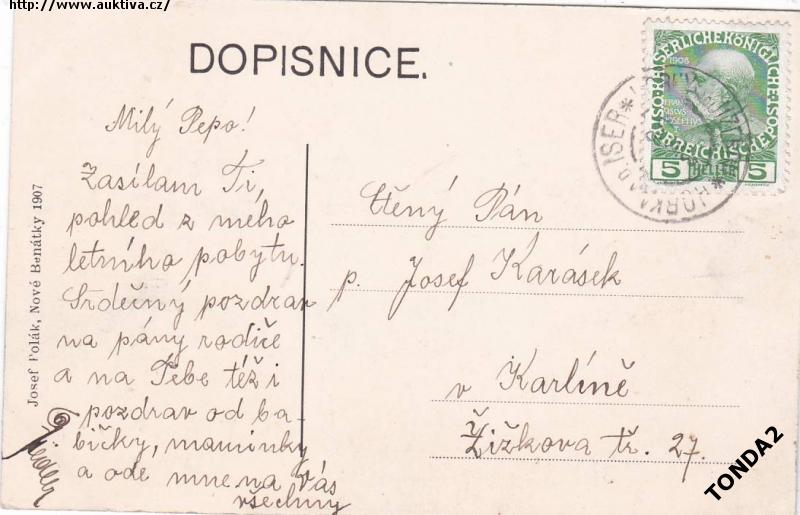 http://www.auktiva.cz/
DOPISNICE.
Milý Pepo!
Zasílám Ti,
pohled z mého
letního pobytu.
Srdečný pozdrav
na pány rodiče
a na Tebe též i
pozdrav od ba-
bičky, maminky
a ode mne na Vás
všechny
Josef Polák, Nové Benátky 1907
Ctěný Pán
p. Josef Karásek
v Karlíně
Žižkova tř. 27.
KAISERLICHE KÖNIGLICHE
1908
5 HELLER 5
HORKA ISER
TONDA2